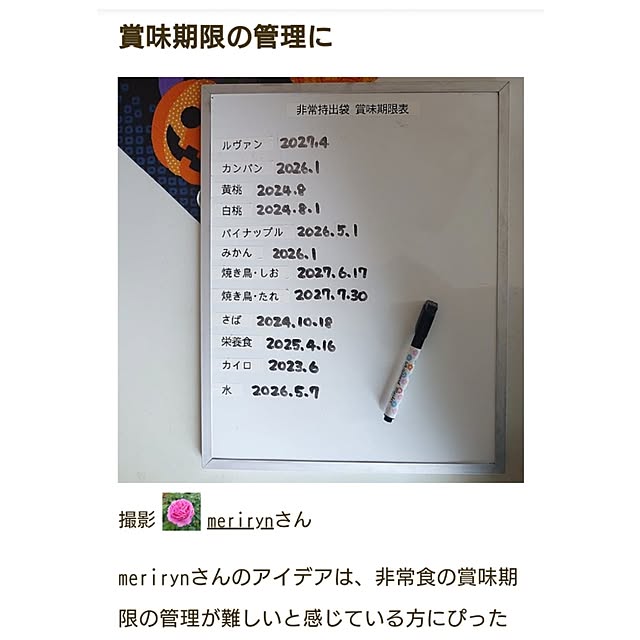 賞味期限の管理に
非常持出袋 賞味期限表
ルヴァン 2027.4
カンパン 2026.1
黄桃 2024.8
白桃 2024.8.1
パイナップル 2026.5.1
みかん 2026.1
焼き鳥・しお 2027.6.17
焼き鳥・たれ 2027.7.30
さば 2024.10.18
栄養食 2025.4.16
カイロ 2023.6
水 2026.5.7
撮影 merirynさん
merirynさんのアイデアは、非常食の賞味期
限の管理が難しいと感じている方にぴった